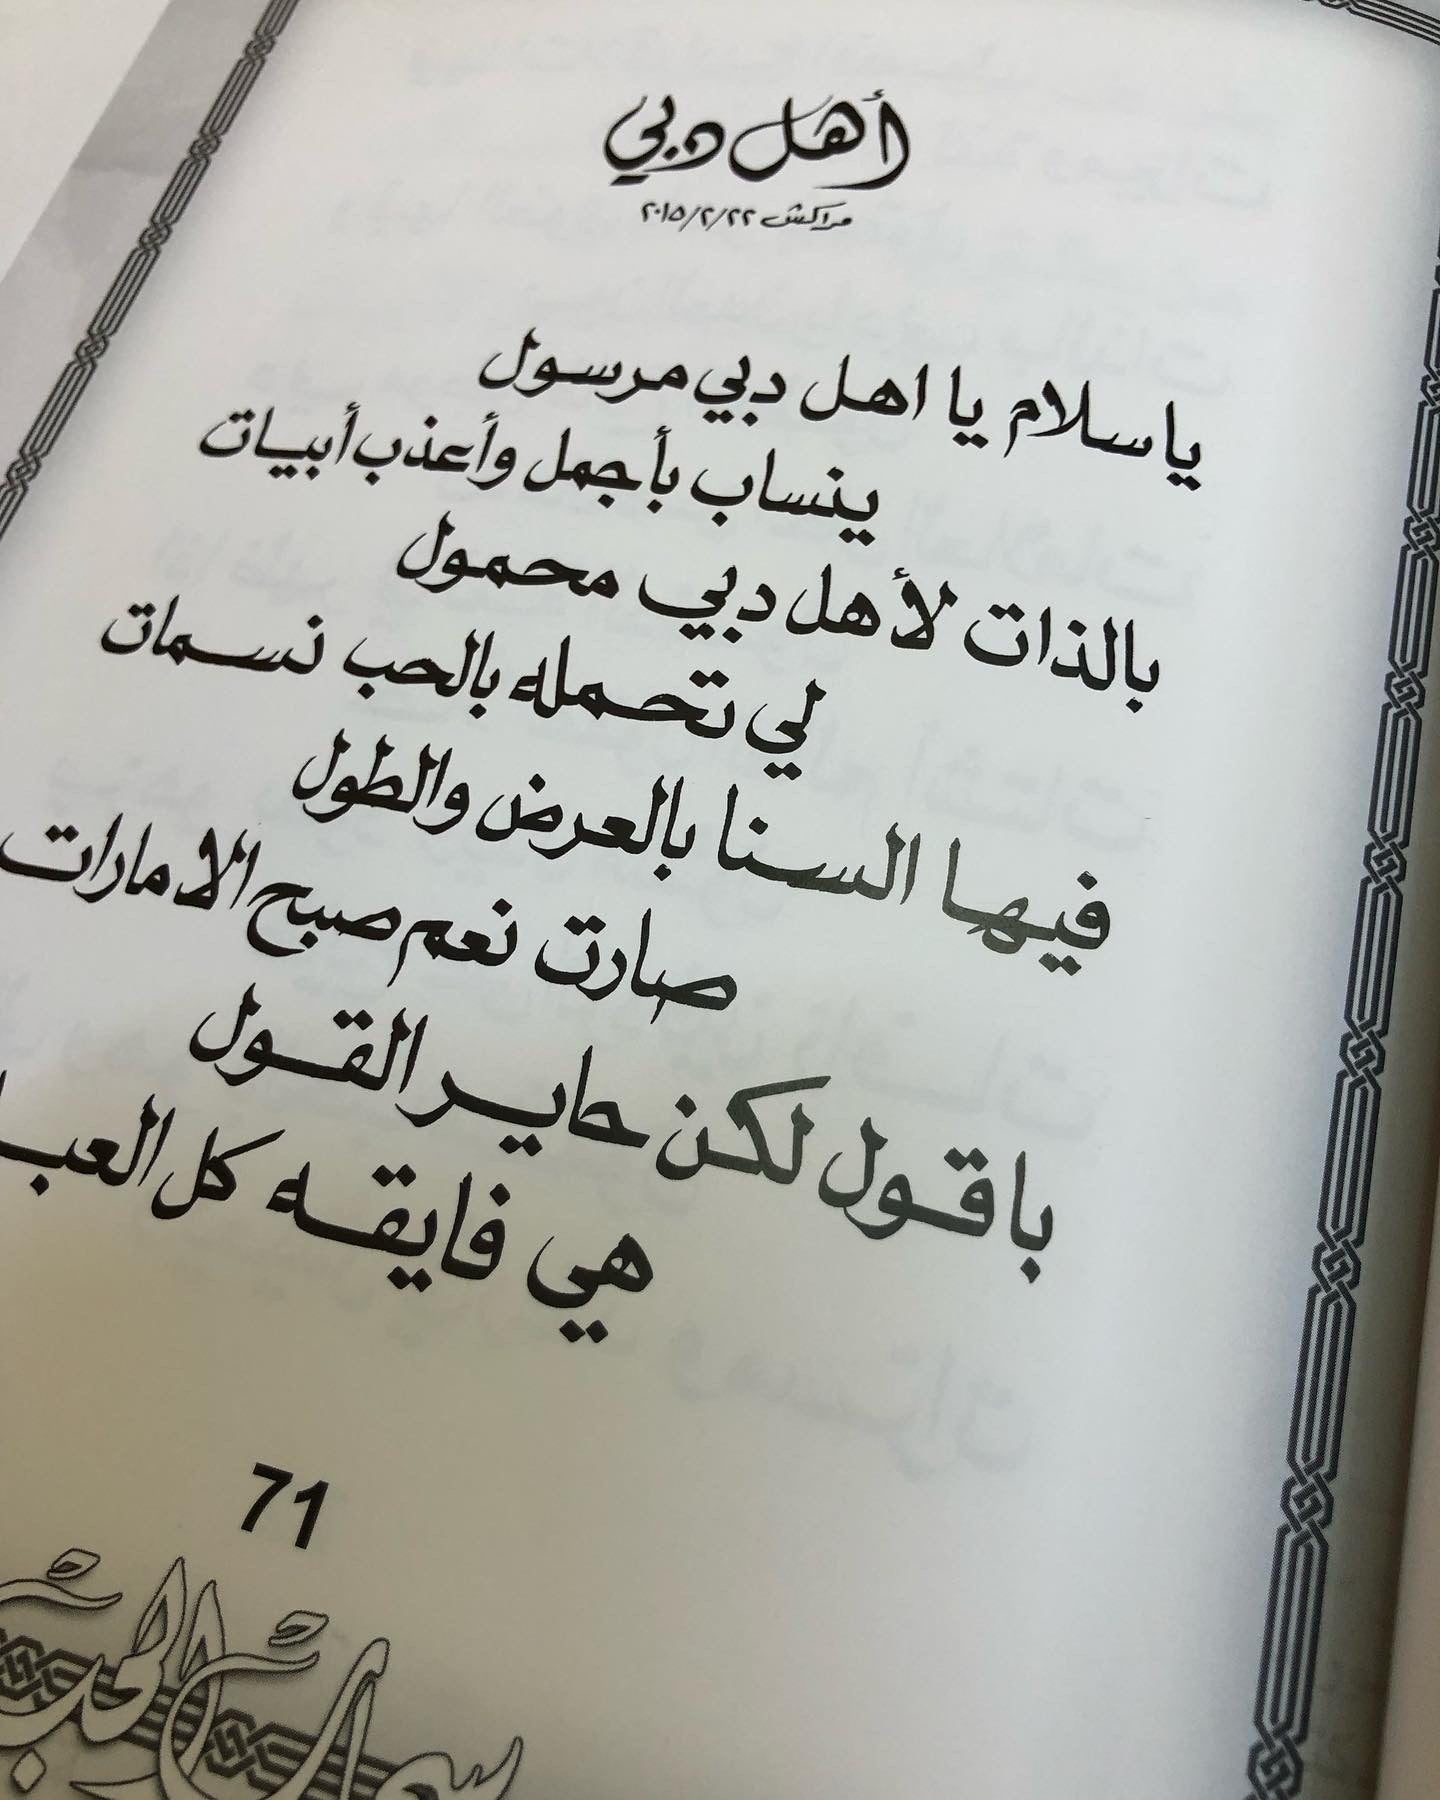 أهل دبي
مراكش ٢٠١٥/٢/٢٢
يا سلام يا اهل دبي مرسول
ينساب بأجمل وأعذب أبيات
بالذات لأهل دبي محمول
لي تحمله بالحب نسمات
فيها السنا بالعرض والطول
صارت نعم صبح الامارات
باقول لكن حاير القول
هي فايقه كل
71